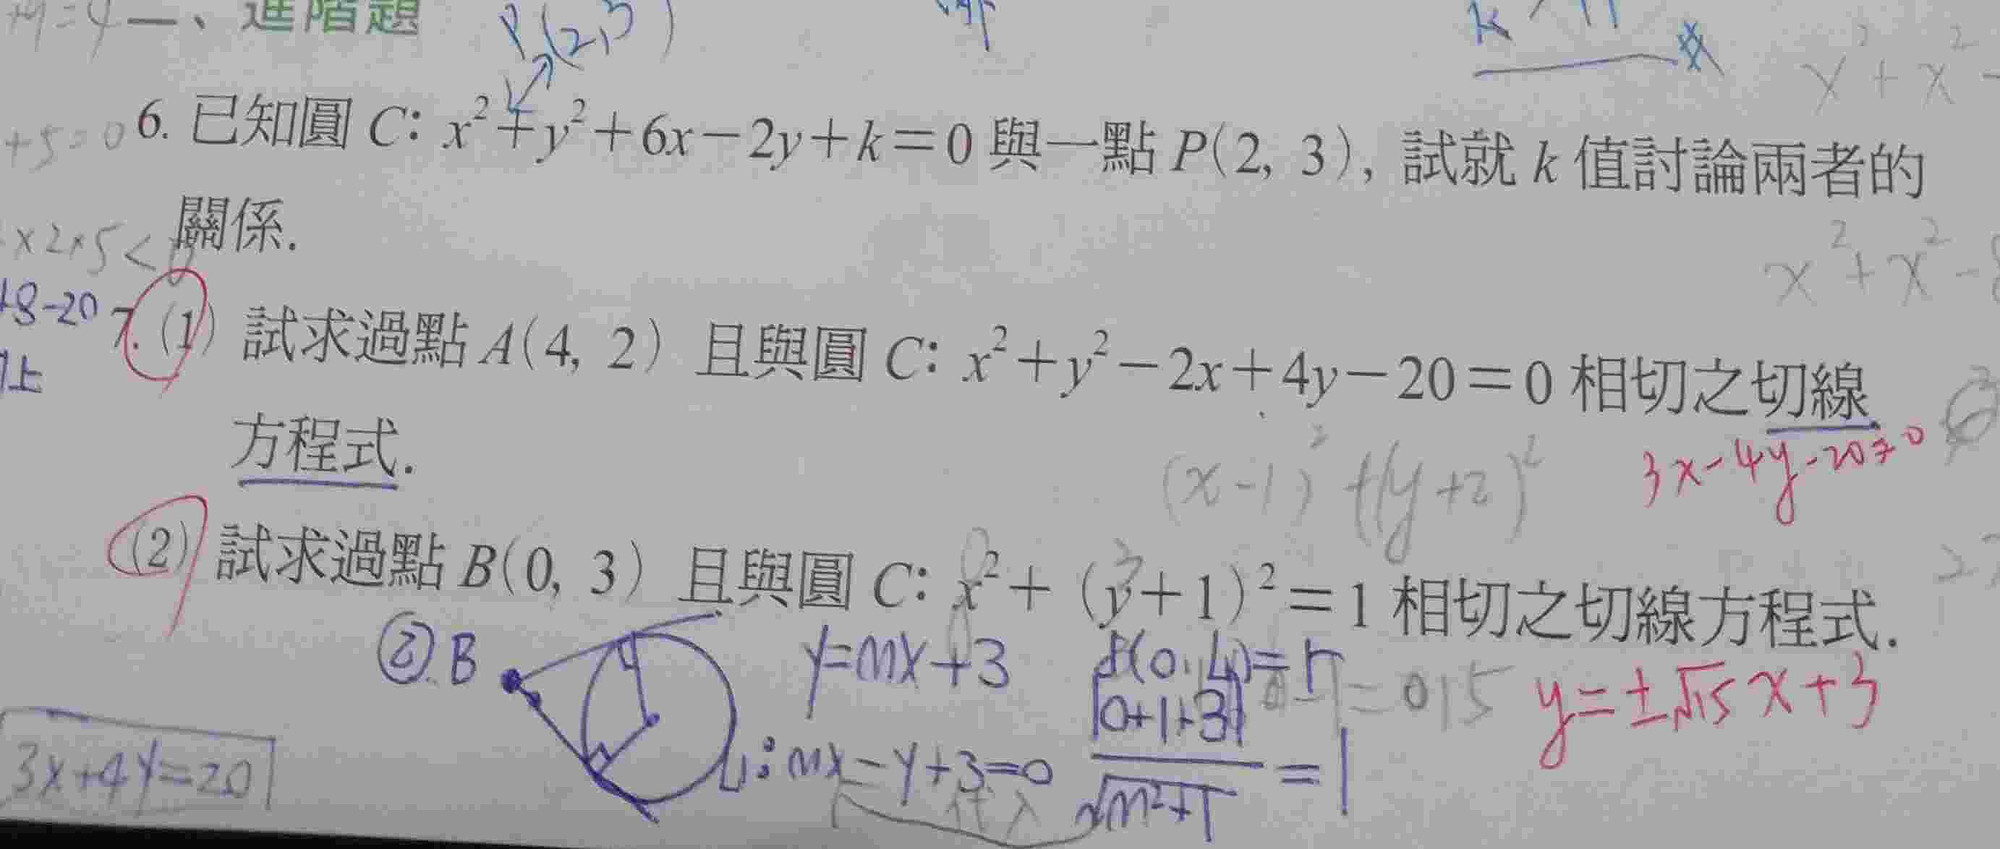 一、進階題
P(2,3)
6. 已知圓 C: x²+y²+6x−2y+k=0 與一點 P(2, 3), 試就 k 值討論兩者的
關係.
+5=0
x²+x²-
×2×5<0
x²+x²-8
+8-20
上
7. (1) 試求過點 A(4, 2) 且與圓 C: x²+y²−2x+4y−20=0 相切之切線
方程式.
(x-1)²+(y+2)²
3x-4y-20=0
(2) 試求過點 B(0, 3) 且與圓 C: x²+(y+1)²=1 相切之切線方程式.
② B
y=mx+3
=r
|0+1+3|/√m²+1 =1
y=±√15x+3
L₁: mx-y+3=0
代入
3x+4y=20